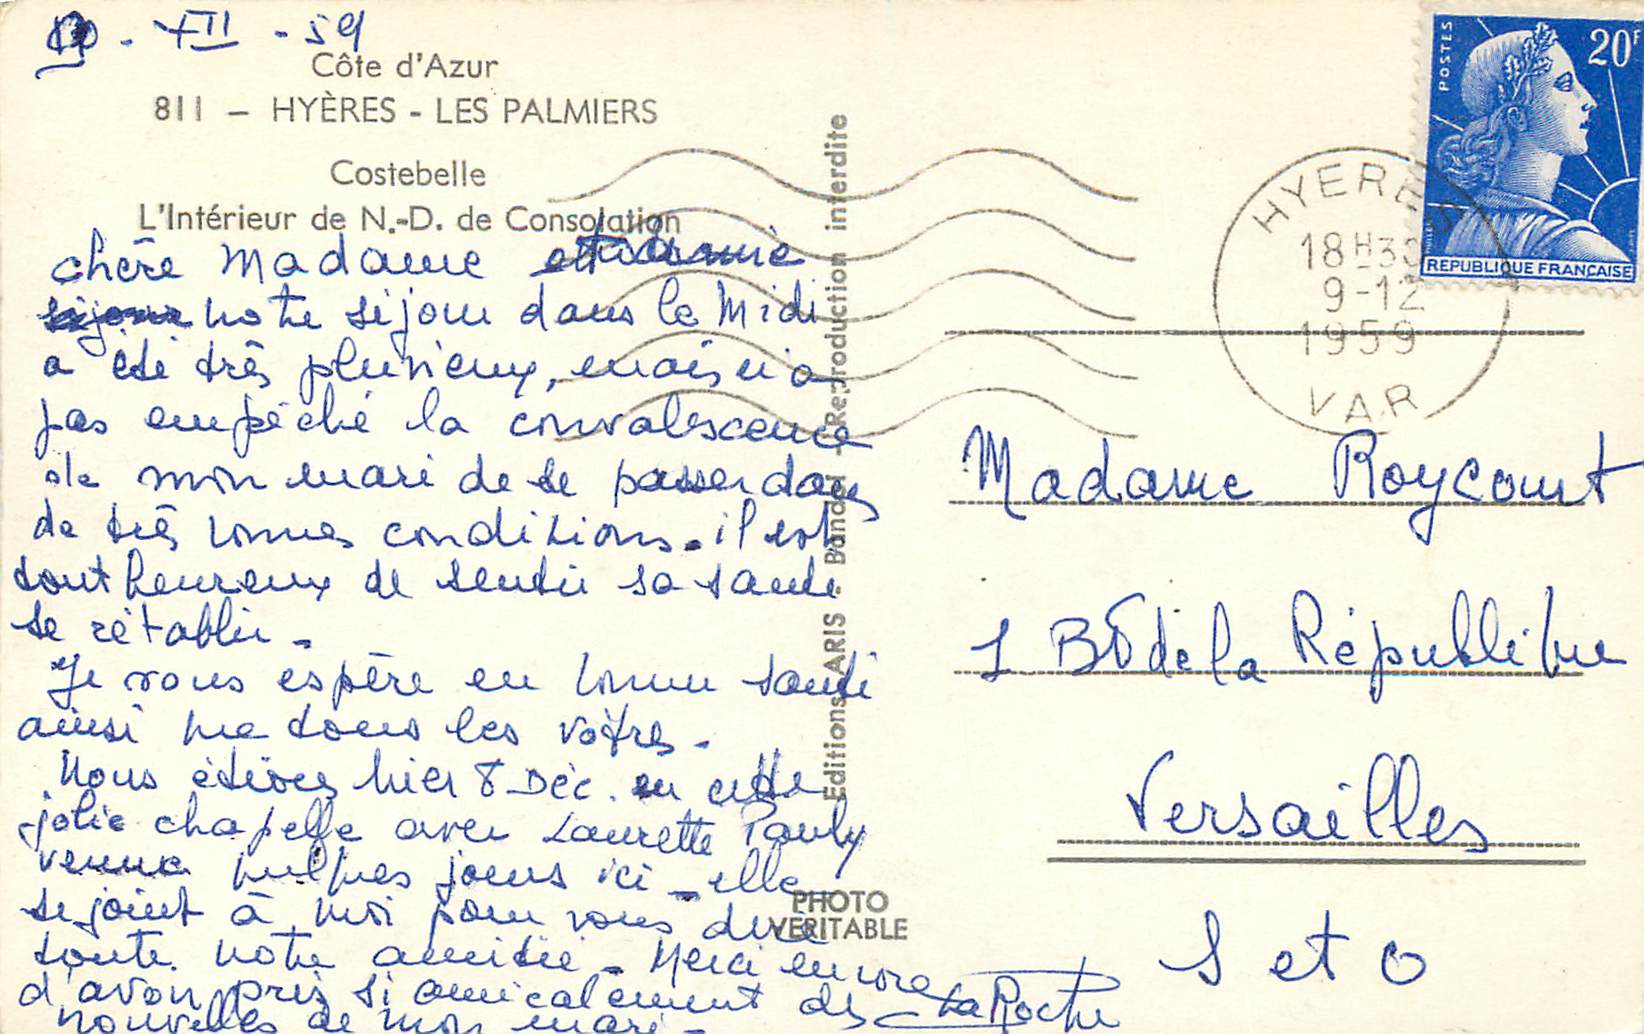 XII - 59
Côte d'Azur
811 – HYÈRES - LES PALMIERS
Costebelle
L'Intérieur de N.-D. de Consolation
chère Madame et amie
notre séjour dans le Midi
a été très pluvieux, mais n'a
pas empêché la convalescence
de mon mari de se passer dans
de très bonnes conditions. il est
tout heureux de sentir sa santé
se rétablir -
Je vous espère en bonne santé
ainsi que tous les vôtres.
Nous étions hier 8 Déc. en cette
jolie chapelle avec Laurette Pauly
venue quelques jours ici - elle
se joint à moi pour vous dire
toute notre amitié - Merci encore
d'avoir pris si amicalement des
nouvelles de mon mari -
La Roche
Editions ARIS - Bandol - Reproduction interdite
PHOTO
VERITABLE
POSTES
20F
REPUBLIQUE FRANÇAISE
HYERES
18H30
9-12
1959
VAR
Madame Roycourt
1 Bd de la République
Versailles
S et O